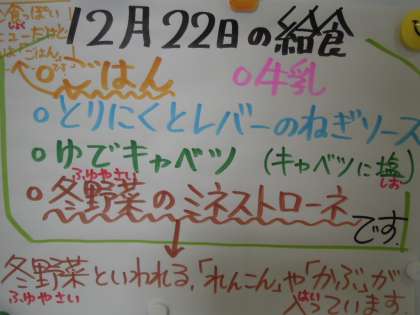 12月22日の給食
ごはん
牛乳
とりにくとレバーのねぎソース
ゆでキャベツ (キャベツに塩)
しお
ふゆやさい
冬野菜のミネストローネ
です。
冬野菜といわれる、「れんこん」や「かぶ」が
ふゆやさい
はい
入っています。